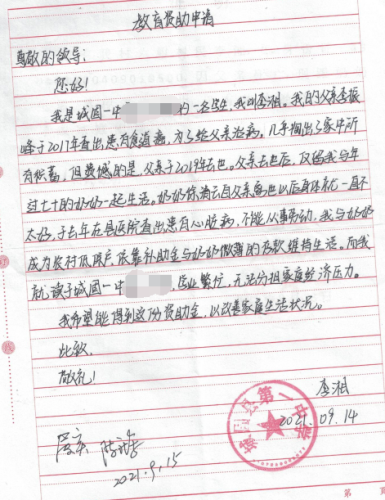 教育资助申请
尊敬的领导:
您好!
我是城固一中 的一名学生,我叫李湘。我的父亲李振
峰于2017年查出患有食道癌,为了给父亲治病,几乎掏出了家中所
有积蓄,但遗憾的是,父亲于2019年去世。父亲去世后,仅留我与年
过七十的奶奶一起生活。奶奶 自父亲离世以后身体就一直不
太好,于去年在县医院查出患有心脏病,不能从事劳动,我与奶奶
成为农村低保户依靠补助金与奶奶微薄的存款维持生活。而我
就读于城固一中 学业繁忙,无法分担家庭经济压力。
我希望能得到这份资助金,以改善家庭生活状况。
此致,
敬礼!
李湘
2021.09.14
城固县第一中学
属实
2021.9.15
第 页